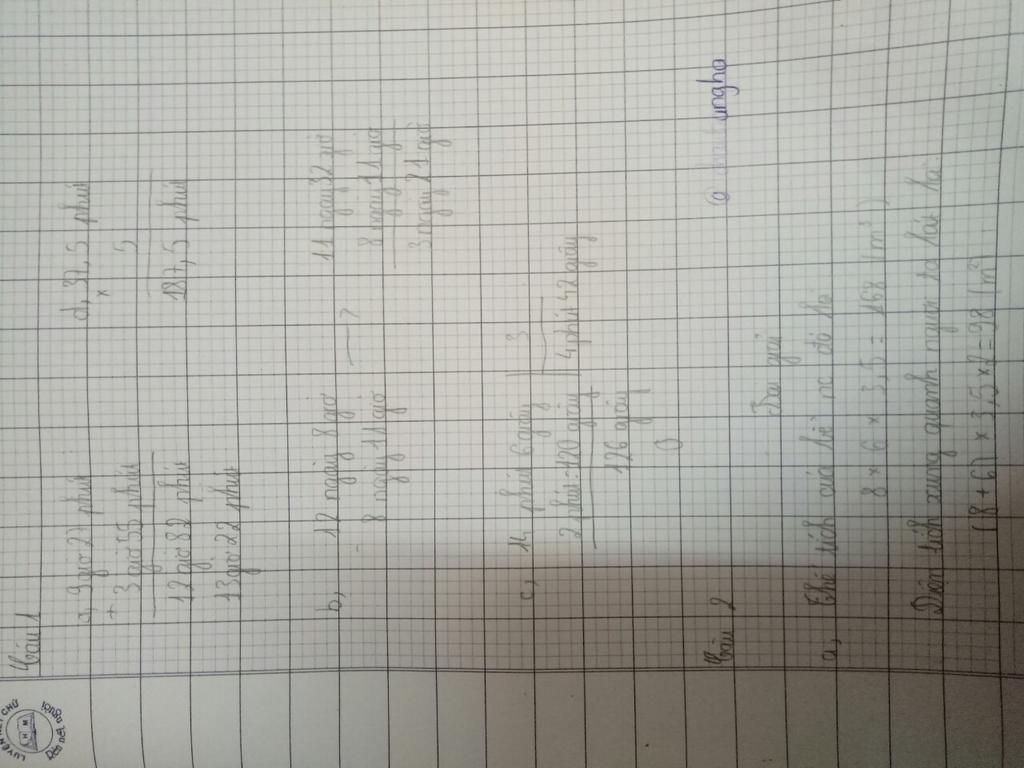 Câu 1
a, 9 giờ 27 phút
+ 3 giờ 55 phút
12 giờ 82 phút
13 giờ 22 phút
d, 37,5 phút
× 5
187,5 phút
b, 12 ngày 8 giờ
- 8 ngày 11 giờ
→
11 ngày 32 giờ
8 ngày 11 giờ
3 ngày 21 giờ
c, 14 phút 6 giây | 3
2 phút = 120 giây | 4 phút 42 giây
126 giây
0
Câu 2
Bài giải
a, Thể tích của bể
8 × 6 × 3,5 = 168 (m³)
Diện tích xung quanh
(8 + 6) × 3,5 × 2 = 98 (m²)